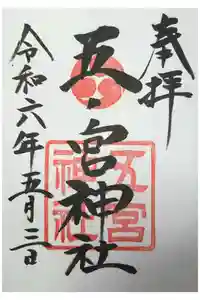 奉拝
五ノ宮神社
五宮神社
令和六年五月三日